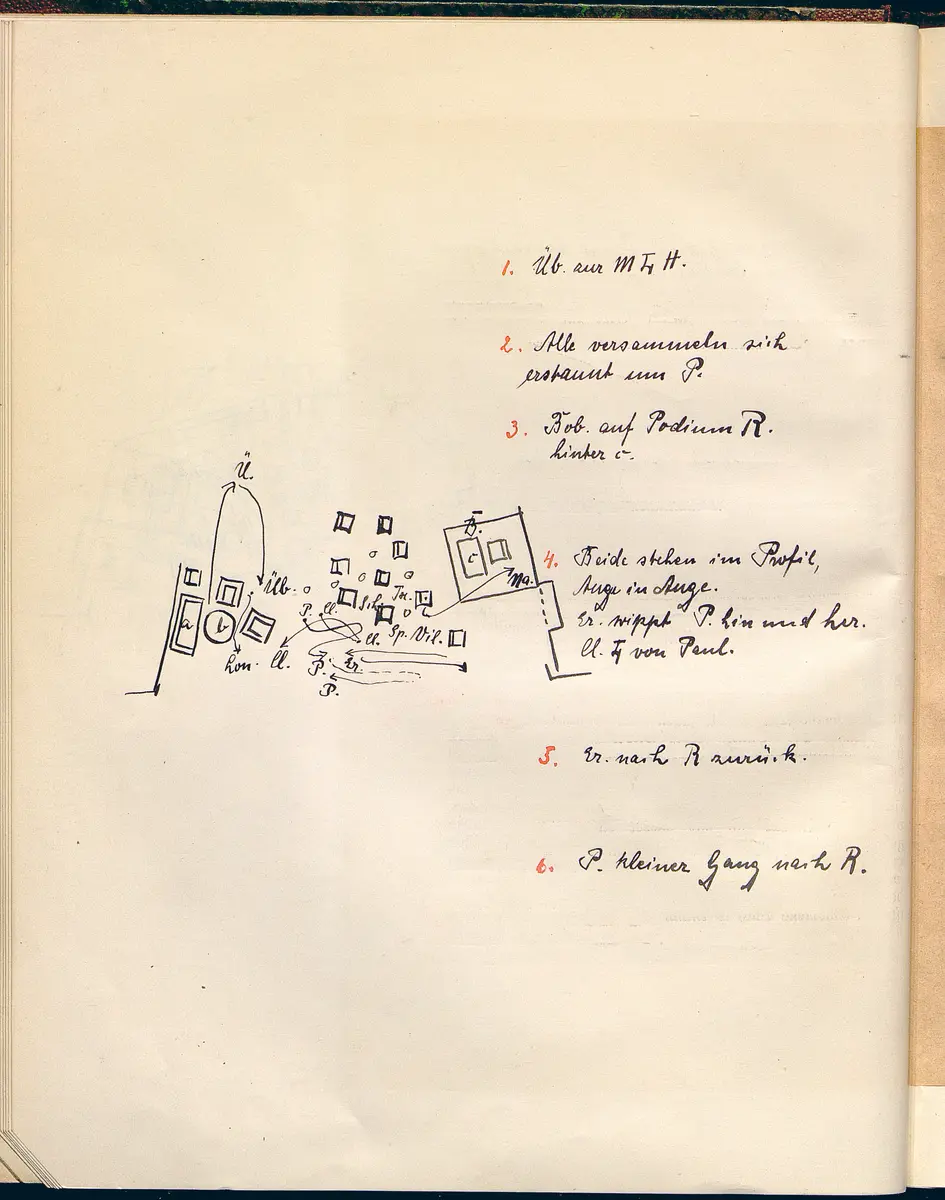 1. Üb. zur M H.
2. Alle versammeln sich
erstaunt um P.
3. Bob. auf Podium R.
hinter c.
4. Beide stehen im Profil,
Auge in Auge.
Er. wippt P. hin und her.
Cl. von Paul.
5. Er. nach R zurück.
6. P. kleiner Gang nach R.
Ü.
B.
c
Ma.
Üb.
a
b
P. Cl. Sch. Ta.
Cl. Sp. Vil.
Lon. Cl. P. Er.
P.